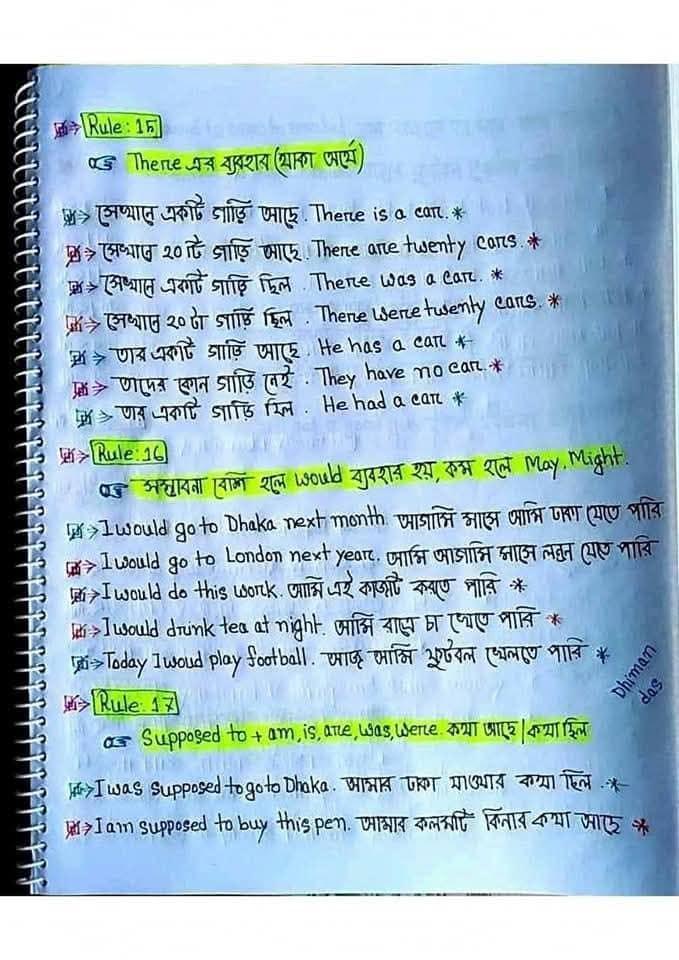 Rule: 15
There এর ব্যবহার (থাকা অর্থে)
সেখানে একটি গাড়ি আছে. There is a car. *
সেখানে ২০টি গাড়ি আছে. There are twenty cars. *
সেখানে একটি গাড়ি ছিল. There was a car. *
সেখানে ২০টা গাড়ি ছিল. There were twenty cars. *
তার একটি গাড়ি আছে. He has a car *
তাদের কোন গাড়ি নেই. They have no car. *
তার একটি গাড়ি ছিল. He had a car *
Rule: 16
সম্ভাবনা বেশি হলে would ব্যবহার হয়, কম হলে May, Might.
I would go to Dhaka next month. আগামি মাসে আমি ঢাকা যেতে পারি
I would go to London next year. আমি আগামি মাসে লন্ডন যেতে পারি
I would do this work. আমি এই কাজটি করতে পারি *
I would drunk tea at night. আমি রাতে চা খেতে পারি *
Today I woud play football. আজ আমি ফুটবল খেলতে পারি *
Dhiman
das
Rule: 17
Supposed to + am, is, are, was, were. কথা আছে | কথা ছিল
I was supposed to go to Dhaka. আমার ঢাকা যাওয়ার কথা ছিল. *
I am supposed to buy this pen. আমার কলমটি কিনার কথা আছে *